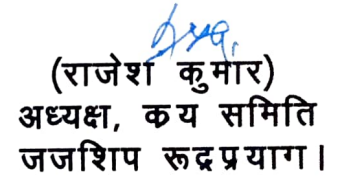 (राजेश कुमार)
अध्यक्ष, कय समिति
जजशिप रूद्रप्रयाग।